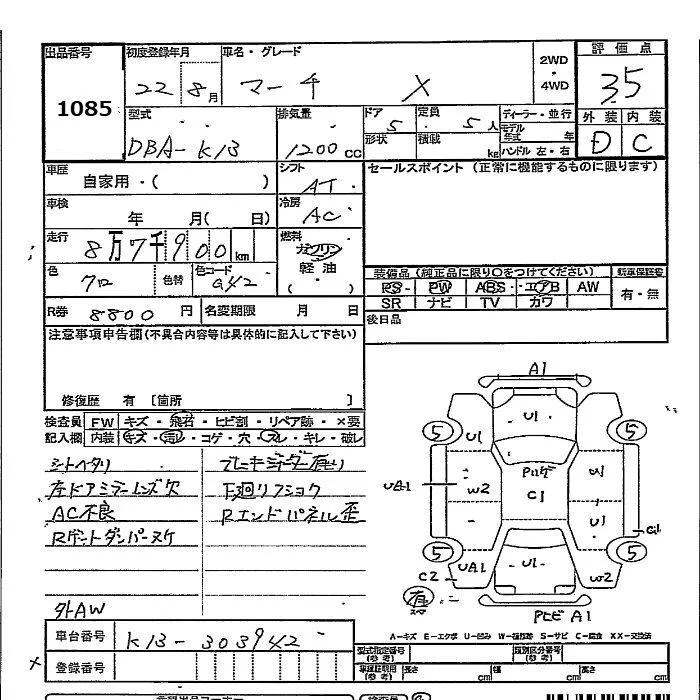 出品番号 初度登録年月 車名・グレード 2WD ・ 4WD 評価点
1085 22 8月 マーチ X 3.5
型式 排気量 ドア 定員 ディーラー・並行 外装 内装
DBA-K13 1200cc 5 5人 モデル年式 年 D C
形状 積載 kg ハンドル 左・右
車歴 シフト セールスポイント (正常に機能するものに限ります)
自家用・( ) AT
車検 冷房
年 月( 日) AC
走行 燃料
8万7千900km ガソリン
軽油
( )
色 色替 色コード 装備品(純正品に限り○をつけてください) 新車保証書
クロ G42 PS PW ABS エアB AW 有・無
SR ナビ TV カワ
R券 8800円 名変期限 月 日 後日品
注意事項申告欄(不具合内容等は具体的に記入して下さい)
修復歴 有 [箇所 ]
検査員 FW キズ・飛石・ヒビ割・リペア跡・×要
記入欄 内装 キズ・汚レ・コゲ・穴・スレ・キレ・破レ
シートヘタリ
左ドアミラーレンズ欠 下廻リフショク
AC不良 Rエンドパネル歪
Rゲートダンパーヌケ
外AW
A1
U1
5 5
U1
UA1 W2 C1 U1
5 5
C2 UA1 U1 W2
有
A1
A-キズ E-エクボ U-凹み W-補修跡 S-サビ C-腐食 XX-交換済
車台番号 K13-303942
登録番号
型式指定番号 (参考) 類別区分番号 (参考)
長さ cm 幅 cm 高さ cm